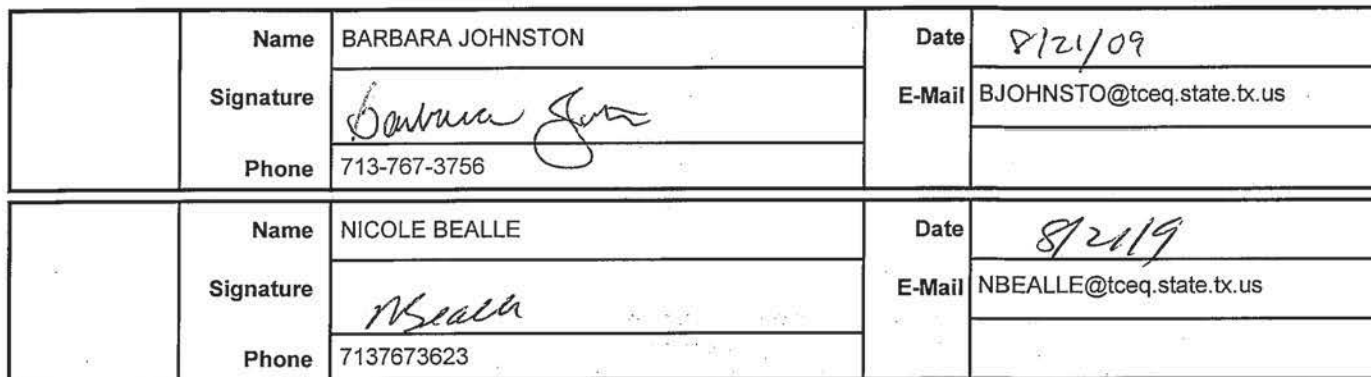 Name BARBARA JOHNSTON Date 8/21/09
Signature Barbara E-Mail BJOHNSTO@tceq.state.tx.us
Phone 713-767-3756
Name NICOLE BEALLE Date 8/21/9
Signature NBealle E-Mail NBEALLE@tceq.state.tx.us
Phone 7137673623